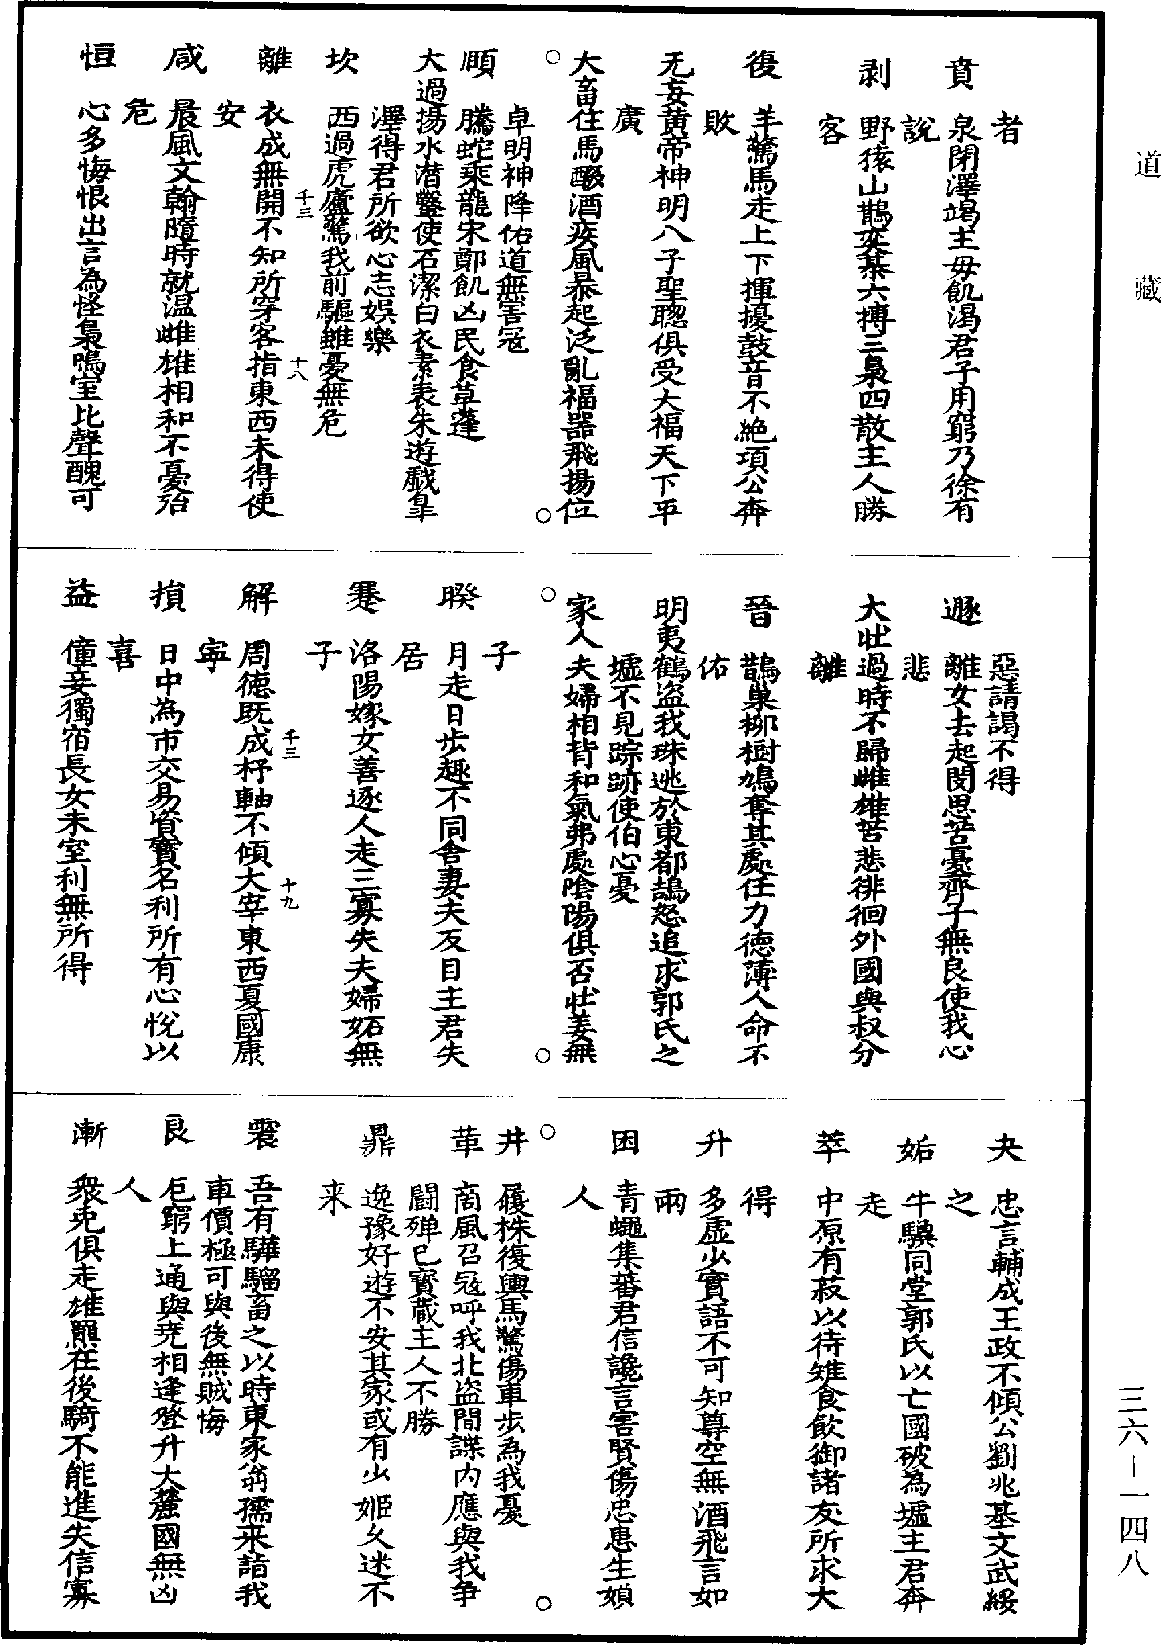 道藏
者
賁　泉閉澤竭主毋飢渴君子用窮乃徐有
說
剥　野猿山鵲奕棊六摶三梟四散主人勝
客
復　羊驚馬走上下揮擾鼓音不絶項公奔
敗
无妄黄帝神明八子聖聰俱受大福天下平
廣
大畜住馬醊酒疾風暴起泛亂福器飛揚位
卓明神降佑道無害寇
頤　騰蛇乘龍宋鄭飢凶民食草蓬
大過揚水潜鑿使石潔白衣素表朱遊戲皐
澤得君所欲心志娱樂
坎　西過虎廬驚我前驅雖憂無危
離　衣成無開不知所穿客指東西未得使
安
千三　十八
咸　晨風文翰隨時就温雌雄相和不憂殆
危
恒　心多悔恨出言為怪梟鳴室比聲醜可
惡請謁不得
遯　離女去起閔思苦憂齊子無良使我心
悲
大壯過時不歸雌雄苦悲徘徊外國與叔分
離
晉　鵲巢柳樹鳩奪其處任力德薄人命不
佑
明夷鶴盜我珠逃於東都鵠怒追求郭氏之
墟不見踪跡使伯心憂
家人夫婦相背和氣弗處陰陽俱否壮姜無
子
睽　月走日步趣不同舍妻夫反目主君失
居
蹇　洛陽嫁女善逐人走三寡失夫婦妬無
子
解　周德既成杼軸不傾大宰東西夏國康
寧
千三　十九
損　日中為市交易資寳各利所有心悅以
喜
益　僮妾獨宿長女未室利無所得
夬　忠言輔成王政不傾公劉兆基文武綏
之
姤　牛驥同堂郭氏以亡國破為墟主君奔
走
萃　中原有菽以待雉食飲御諸友所求大
得
升　多虚少實語不可知尊空無酒飛言如
雨
困　青蠅集蕃君信讒言害賢傷忠患生婦
人
井　履株復輿馬驚傷車步為我憂
革　商風召冦呼我北盜間諜内應與我争
鬭殫已寳藏主人不勝
鼎　逸豫好遊不安其家或有少姬久迷不
来
震　吾有驊騮畜之以時東家翁孺来詣我
車價極可與後無賊悔
艮　卮窮上通與堯相逢登升大麓國無凶
人
漸　衆兎俱走雄羆在後騎不能進失信寡
三六—一四八